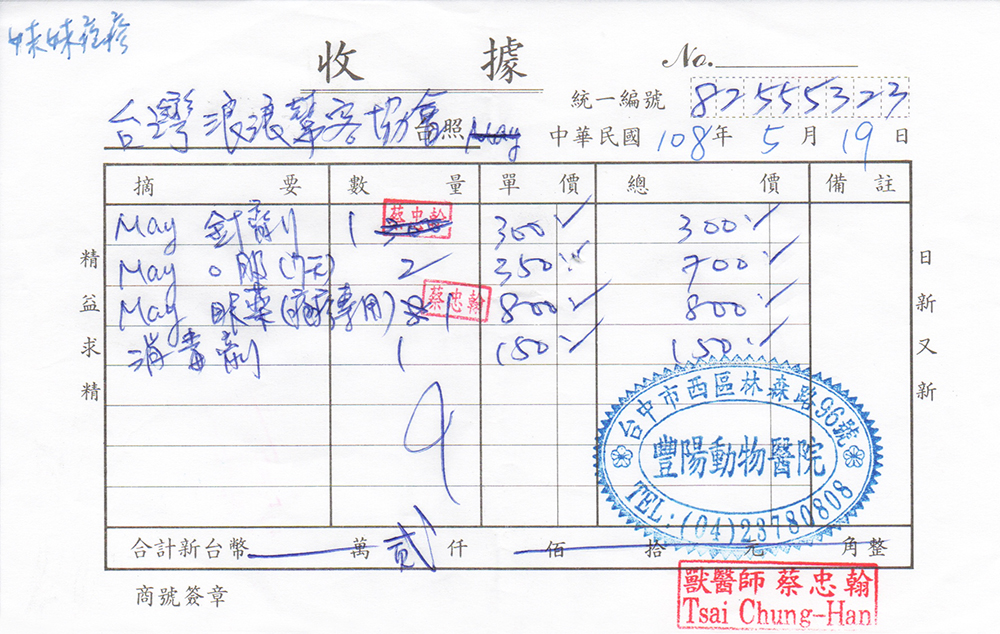 妹妹疱疹
收 據
No.
統一編號 82555323
台灣浪浪華客協會 台照 May
中華民國 108 年 5 月 19 日
摘 要 數 量 單 價 總 價 備 註
May 針劑 1 蔡忠翰 300 300
May 口服(7天) 2 350 700
May 眼藥(專用) 1 蔡忠翰 800 800
消毒劑 1 150 150
精益求精
日新又新
台中市西區林森路96號
豐陽動物醫院
TEL:(04)23780808
合計新台幣 萬 貳 仟 佰 拾 元 角整
商號簽章
獸醫師 蔡忠翰
Tsai Chung-Han